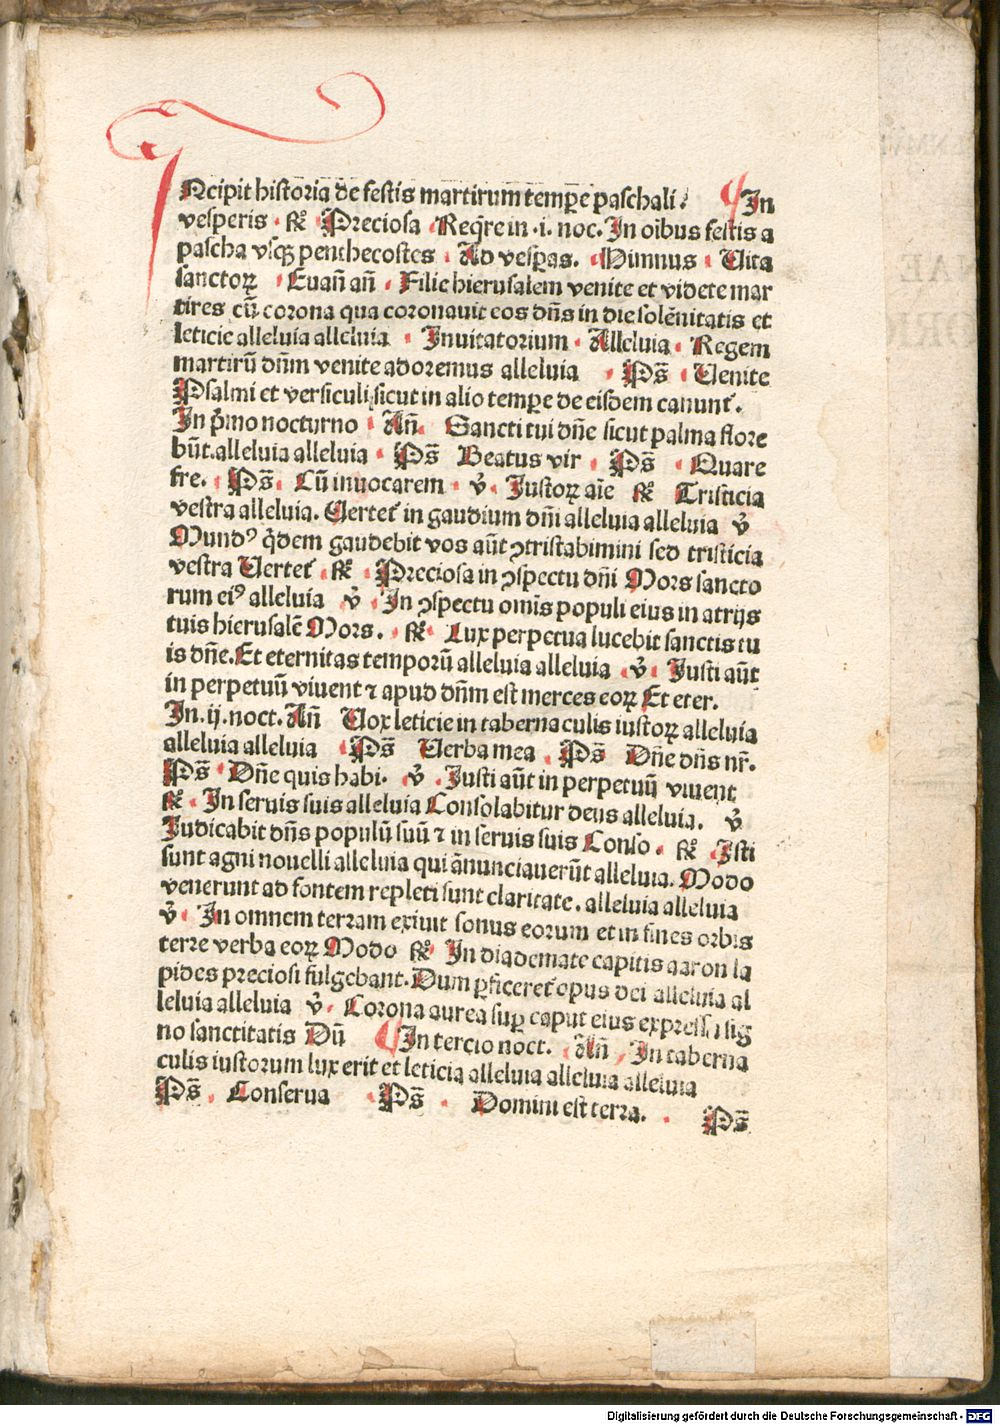 INcipit historia de festis martirum temꝑe paschali. ¶ In
vesperis . ℟ Preciosa Reqͬre in .i. noc. In oībus festis a
pascha vsqꝫ penthecostes . Ad vesꝑas. Himnus . Vita
sanctoꝝ . Euan̄ an̄ . Filie hierusalem venite et videte mar
tires cū corona qua coronauit eos dn̄s in die solēnitatis et
leticie alleluia alleluia . Inuitatorium . Alleluia . Regem
martirū dn̄m venite adoremus alleluia . Ps̄ . Uenite
Psalmi et versiculi sicut in alio temꝑe de eisdem canunt᷑.
In pͥmo nocturno . An̄. Sancti tui dn̄e sicut palma flore
būt.alleluia alleluia . Ps̄ Beatus vir . Ps̄ . Quare
fre. . Ps̄ . Cū inuocarem . ℣ . Iustoꝝ aīe ℟ Tristicia
vestra alleluia. Uertet᷑ in gaudium dn̄i alleluia alleluia ℣
Mundꝰ qͥdem gaudebit vos aūt ꝯtristabimini sed tristicia
vestra Uertet᷑ . ℟ . Preciosa in ꝯspectu dn̄i Mors sancto
rum eiꝰ alleluia ℣ . In ꝯspectu omīs populi eius in atrijs
tuis hierusalē Mors. . ℟ . Lux perpetua lucebit sanctis tu
is dn̄e.Et eternitas temporū alleluia alleluia . ℣ . Iusti aūt
in perpetuū viuent ⁊ apud dn̄m est merces eoꝝ Et eter.
In .ij. noct. An̄ Uox leticie in tabernaculis iustoꝝ alleluia
alleluia alleluia . Ps̄ Uerba mea . Ps̄ Dn̄e dn̄s nr̄.
Ps̄ . Dn̄e quis habi. . ℣ . Iusti aūt in perpetuū viuent
℟ . In seruis suis alleluia Consolabitur deus alleluia. ℣
Iudicabit dn̄s populū suū ⁊ in seruis suis Conso . ℟ . Isti
sunt agni nouelli alleluia qui ānunciauerūt alleluia. Modo
venerunt ad fontem repleti sunt claritate . alleluia alleluia
℣ . In omnem terram exiuit sonus eorum et in fines orbis
terre verba eoꝝ Modo ℟ . In diademate capitis aaron la
pides preciosi fulgebant.Dum ꝑficeret᷑ opus dei alleluia al
leluia alleluia ℣ . Corona aurea suꝑ caput eius expressa sig
no sanctitatis Dū ¶ In tercio noct. . An̄ . In taberna
culis iustorum lux erit et leticia alleluia alleluia alleluia
Ps̄ . Conserua . Ps̄ . Domini est terra. . Ps̄
Digitalisierung gefördert durch die Deutsche Forschungsgemeinschaft - DFG